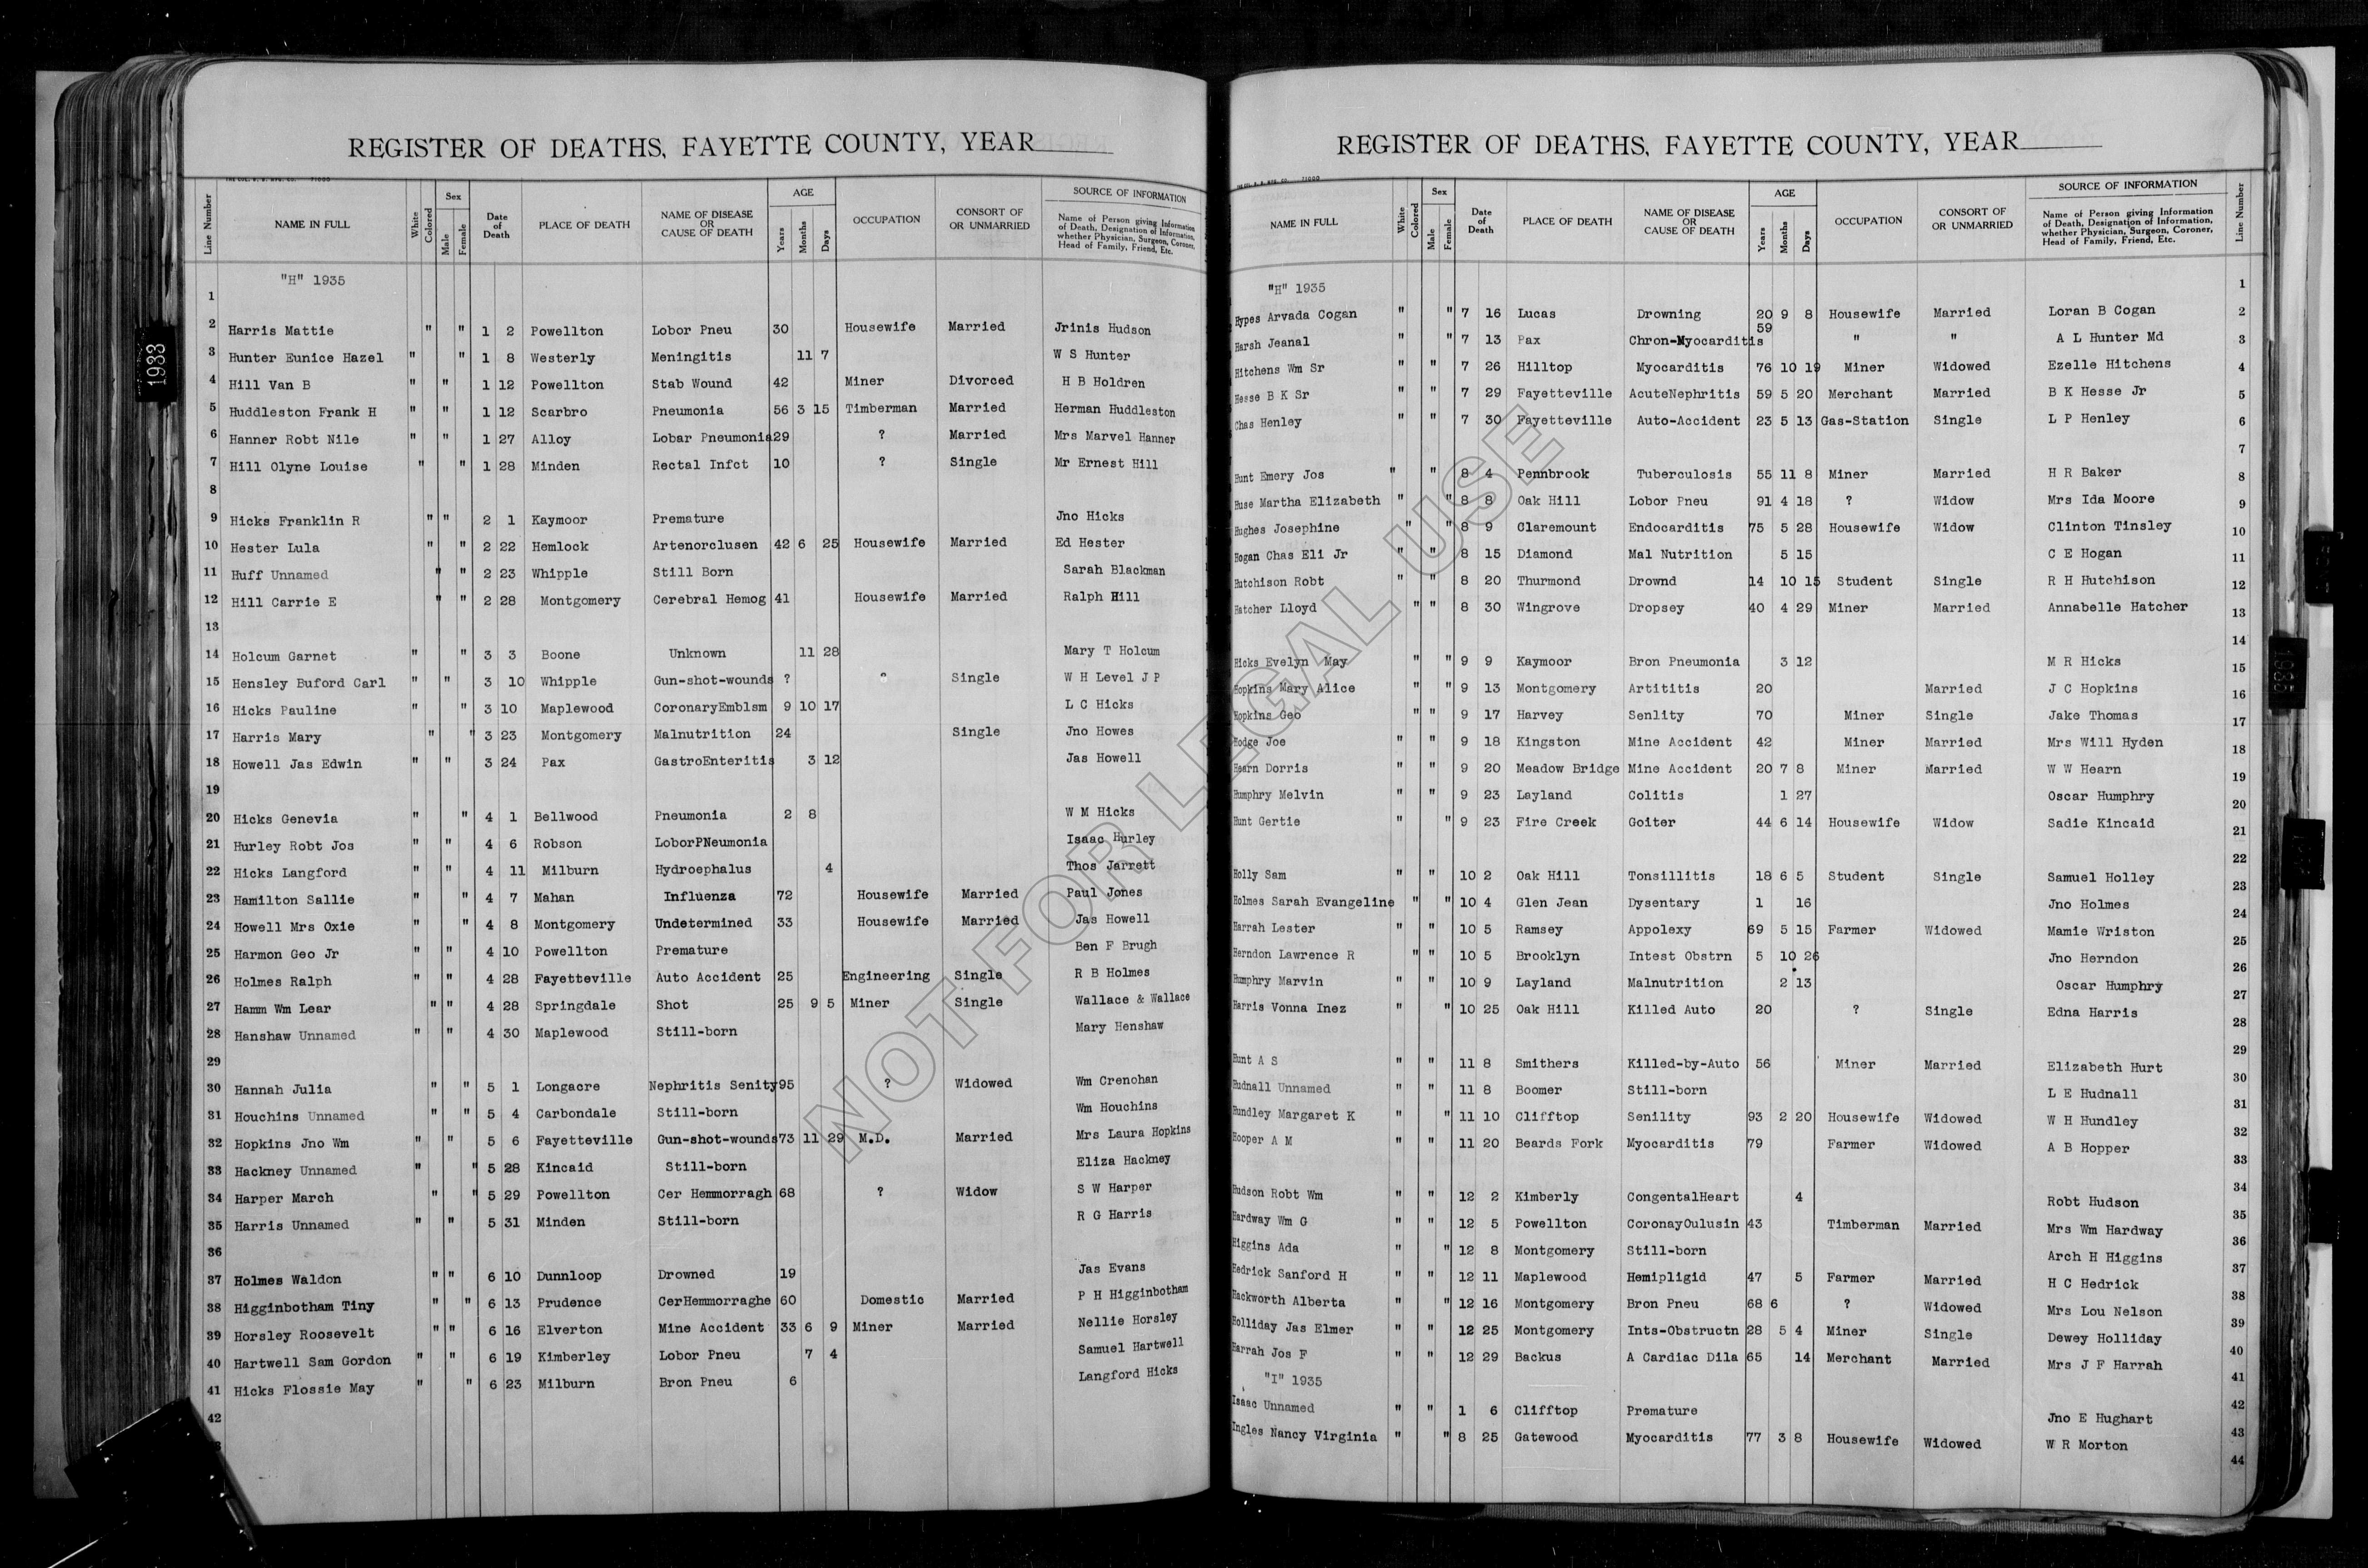 1933
REGISTER OF DEATHS, FAYETTE COUNTY, YEAR
Line Number NAME IN FULL White Colored Sex Male Female Date of Death PLACE OF DEATH NAME OF DISEASE OR CAUSE OF DEATH AGE Years Months Days OCCUPATION CONSORT OF OR UNMARRIED SOURCE OF INFORMATION Name of Person giving Information of Death, Designation of Information, whether Physician, Surgeon, Coroner, Head of Family, Friend, Etc.
"H" 1935
1
2 Harris Mattie " " 1 2 Powellton Lobor Pneu 30 Housewife Married Jrinis Hudson
3 Hunter Eunice Hazel " " 1 8 Westerly Meningitis 11 7 W S Hunter
4 Hill Van B " " 1 12 Powellton Stab Wound 42 Miner Divorced H B Holdren
5 Huddleston Frank H " " 1 12 Scarbro Pneumonia 56 3 15 Timberman Married Herman Huddleston
6 Hanner Robt Nile " " 1 27 Alloy Lobar Pneumonia 29 ? Married Mrs Marvel Hanner
7 Hill Olyne Louise " " 1 28 Minden Rectal Infct 10 ? Single Mr Ernest Hill
8
9 Hicks Franklin R " " 2 1 Kaymoor Premature Jno Hicks
10 Hester Lula " " 2 22 Hemlock Artenorclusen 42 6 25 Housewife Married Ed Hester
11 Huff Unnamed " " 2 23 Whipple Still Born Sarah Blackman
12 Hill Carrie E " " 2 28 Montgomery Cerebral Hemog 41 Housewife Married Ralph Hill
13
14 Holcum Garnet " " 3 3 Boone Unknown 11 28 Mary T Holcum
15 Hensley Buford Carl " " 3 10 Whipple Gun-shot-wounds ? Single W H Level J P
16 Hicks Pauline " " 3 10 Maplewood CoronaryEmblsm 9 10 17 L C Hicks
17 Harris Mary " " 3 23 Montgomery Malnutrition 24 Single Jno Howes
18 Howell Jas Edwin " " 3 24 Pax GastroEnteritis 3 12 Jas Howell
19
20 Hicks Genevia " " 4 1 Bellwood Pneumonia 2 8 W M Hicks
21 Hurley Robt Jos " " 4 6 Robson LoborPNeumonia Isaac Hurley
22 Hicks Langford " " 4 11 Milburn Hydroephalus 4 Thos Jarrett
23 Hamilton Sallie " " 4 7 Mahan Influenza 72 Housewife Married Paul Jones
24 Howell Mrs Oxie " " 4 8 Montgomery Undetermined 33 Housewife Married Jas Howell
25 Harmon Geo Jr " " 4 10 Powellton Premature Ben F Brugh
26 Holmes Ralph " " 4 28 Fayetteville Auto Accident 25 Engineering Single R B Holmes
27 Hamm Wm Lear " " 4 28 Springdale Shot 25 9 5 Miner Single Wallace & Wallace
28 Hanshaw Unnamed " " 4 30 Maplewood Still-born Mary Henshaw
29
30 Hannah Julia " " 5 1 Longacre Nephritis Senity 95 ? Widowed Wm Crenohan
31 Houchins Unnamed " " 5 4 Carbondale Still-born Wm Houchins
32 Hopkins Jno Wm " " 5 6 Fayetteville Gun-shot-wounds 73 11 29 M.D. Married Mrs Laura Hopkins
33 Hackney Unnamed " " 5 28 Kincaid Still-born Eliza Hackney
34 Harper March " " 5 29 Powellton Cer Hemmorragh 68 ? Widow S W Harper
35 Harris Unnamed " " 5 31 Minden Still-born R G Harris
36
37 Holmes Waldon " " 6 10 Dunnloop Drowned 19 Jas Evans
38 Higginbotham Tiny " " 6 13 Prudence CerHemmorraghe 60 Domestic Married P H Higginbotham
39 Horsley Roosevelt " " 6 16 Elverton Mine Accident 33 6 9 Miner Married Nellie Horsley
40 Hartwell Sam Gordon " " 6 19 Kimberley Lobor Pneu 7 4 Samuel Hartwell
41 Hicks Flossie May " " 6 23 Milburn Bron Pneu 6 Langford Hicks
42
REGISTER OF DEATHS, FAYETTE COUNTY, YEAR
NAME IN FULL White Colored Sex Male Female Date of Death PLACE OF DEATH NAME OF DISEASE OR CAUSE OF DEATH AGE Years Months Days OCCUPATION CONSORT OF OR UNMARRIED SOURCE OF INFORMATION Name of Person giving Information of Death, Designation of Information, whether Physician, Surgeon, Coroner, Head of Family, Friend, Etc. Line Number
"H" 1935 1
Hypes Arvada Cogan " " 7 16 Lucas Drowning 20 9 8 Housewife Married Loran B Cogan 2
Harsh Jeanal " " 7 13 Pax Chron-Myocarditis 59 " " A L Hunter Md 3
Hitchens Wm Sr " " 7 26 Hilltop Myocarditis 76 10 19 Miner Widowed Ezelle Hitchens 4
Hesse B K Sr " " 7 29 Fayetteville AcuteNephritis 59 5 20 Merchant Married B K Hesse Jr 5
Chas Henley " " 7 30 Fayetteville Auto-Accident 23 5 13 Gas-Station Single L P Henley 6
7
Hunt Emery Jos " " 8 4 Pennbrook Tuberculosis 55 11 8 Miner Married H R Baker 8
Huse Martha Elizabeth " " 8 8 Oak Hill Lobor Pneu 91 4 18 ? Widow Mrs Ida Moore 9
Hughes Josephine " " 8 9 Claremount Endocarditis 75 5 28 Housewife Widow Clinton Tinsley 10
Hogan Chas Eli Jr " " 8 15 Diamond Mal Nutrition 5 15 C E Hogan 11
Hutchison Robt " " 8 20 Thurmond Drownd 14 10 15 Student Single R H Hutchison 12
Hatcher Lloyd " " 8 30 Wingrove Dropsey 40 4 29 Miner Married Annabelle Hatcher 13
14
Hicks Evelyn May " " 9 9 Kaymoor Bron Pneumonia 3 12 M R Hicks 15
Hopkins Mary Alice " " 9 13 Montgomery Artititis 20 Married J C Hopkins 16
Hopkins Geo " " 9 17 Harvey Senlity 70 Miner Single Jake Thomas 17
Hodge Joe " " 9 18 Kingston Mine Accident 42 Miner Married Mrs Will Hyden 18
Hearn Dorris " " 9 20 Meadow Bridge Mine Accident 20 7 8 Miner Married W W Hearn 19
Humphry Melvin " " 9 23 Layland Colitis 1 27 Oscar Humphry 20
Hunt Gertie " " 9 23 Fire Creek Goiter 44 6 14 Housewife Widow Sadie Kincaid 21
22
Holly Sam " " 10 2 Oak Hill Tonsillitis 18 6 5 Student Single Samuel Holley 23
Holmes Sarah Evangeline " " 10 4 Glen Jean Dysentary 1 16 Jno Holmes 24
Harrah Lester " " 10 5 Ramsey Appolexy 69 5 15 Farmer Widowed Mamie Wriston 25
Herndon Lawrence R " " 10 5 Brooklyn Intest Obstrn 5 10 26 Jno Herndon 26
Humphry Marvin " " 10 9 Layland Malnutrition 2 13 Oscar Humphry 27
Harris Vonna Inez " " 10 25 Oak Hill Killed Auto 20 ? Single Edna Harris 28
29
Hunt A S " " 11 8 Smithers Killed-by-Auto 56 Miner Married Elizabeth Hurt 30
Hudnall Unnamed " " 11 8 Boomer Still-born L E Hudnall 31
Hundley Margaret K " " 11 10 Clifftop Senility 93 2 20 Housewife Widowed W H Hundley 32
Hooper A M " " 11 20 Beards Fork Myocarditis 79 Farmer Widowed A B Hopper 33
34
Hudson Robt Wm " " 12 2 Kimberly CongentalHeart 4 Robt Hudson 35
Hardway Wm G " " 12 5 Powellton CoronayOulusin 43 Timberman Married Mrs Wm Hardway 36
Higgins Ada " " 12 8 Montgomery Still-born Arch H Higgins 37
Hedrick Sanford H " " 12 11 Maplewood Hemipligid 47 5 Farmer Married H C Hedrick 38
Hackworth Alberta " " 12 16 Montgomery Bron Pneu 68 6 ? Widowed Mrs Lou Nelson 39
Holliday Jas Elmer " " 12 25 Montgomery Ints-Obstructn 28 5 4 Miner Single Dewey Holliday 40
Harrah Jos F " " 12 29 Backus A Cardiac Dila 65 14 Merchant Married Mrs J F Harrah 41
"I" 1935
Isaac Unnamed " " 1 6 Clifftop Premature Jno E Hughart 42
Ingles Nancy Virginia " " 8 25 Gatewood Myocarditis 77 3 8 Housewife Widowed W R Morton 43
44
NOT FOR LEGAL USE